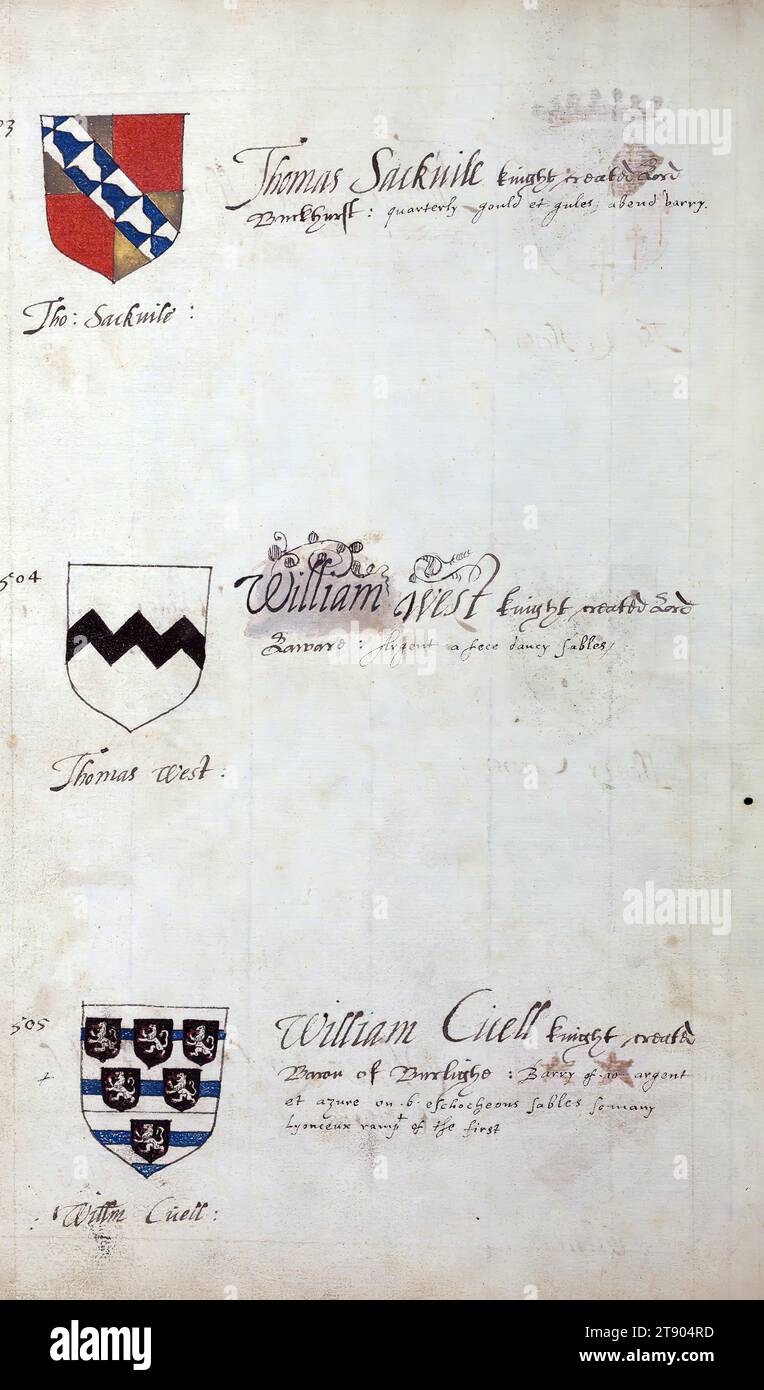 03
Thomas Sackuile knight created Lord
Buckhurst : quarterly gould et gules, a bend varry.
Tho: Sackuile :
504
William West knight created Lord
Laward : Argent a fece dancy sables
Thomas West :
505
William Cicell knight created
Baron of Burlighe : Barry of .10. argent
et azure on .6. eschocheons sables so many
Lyonceux ramp^t of the first
Willm Cicell :
alamy
alamy
alamy
alamy
alamy
alamy
alamy
a
a
a
a
alamy
Image ID: 2T904RD
www.alamy.com